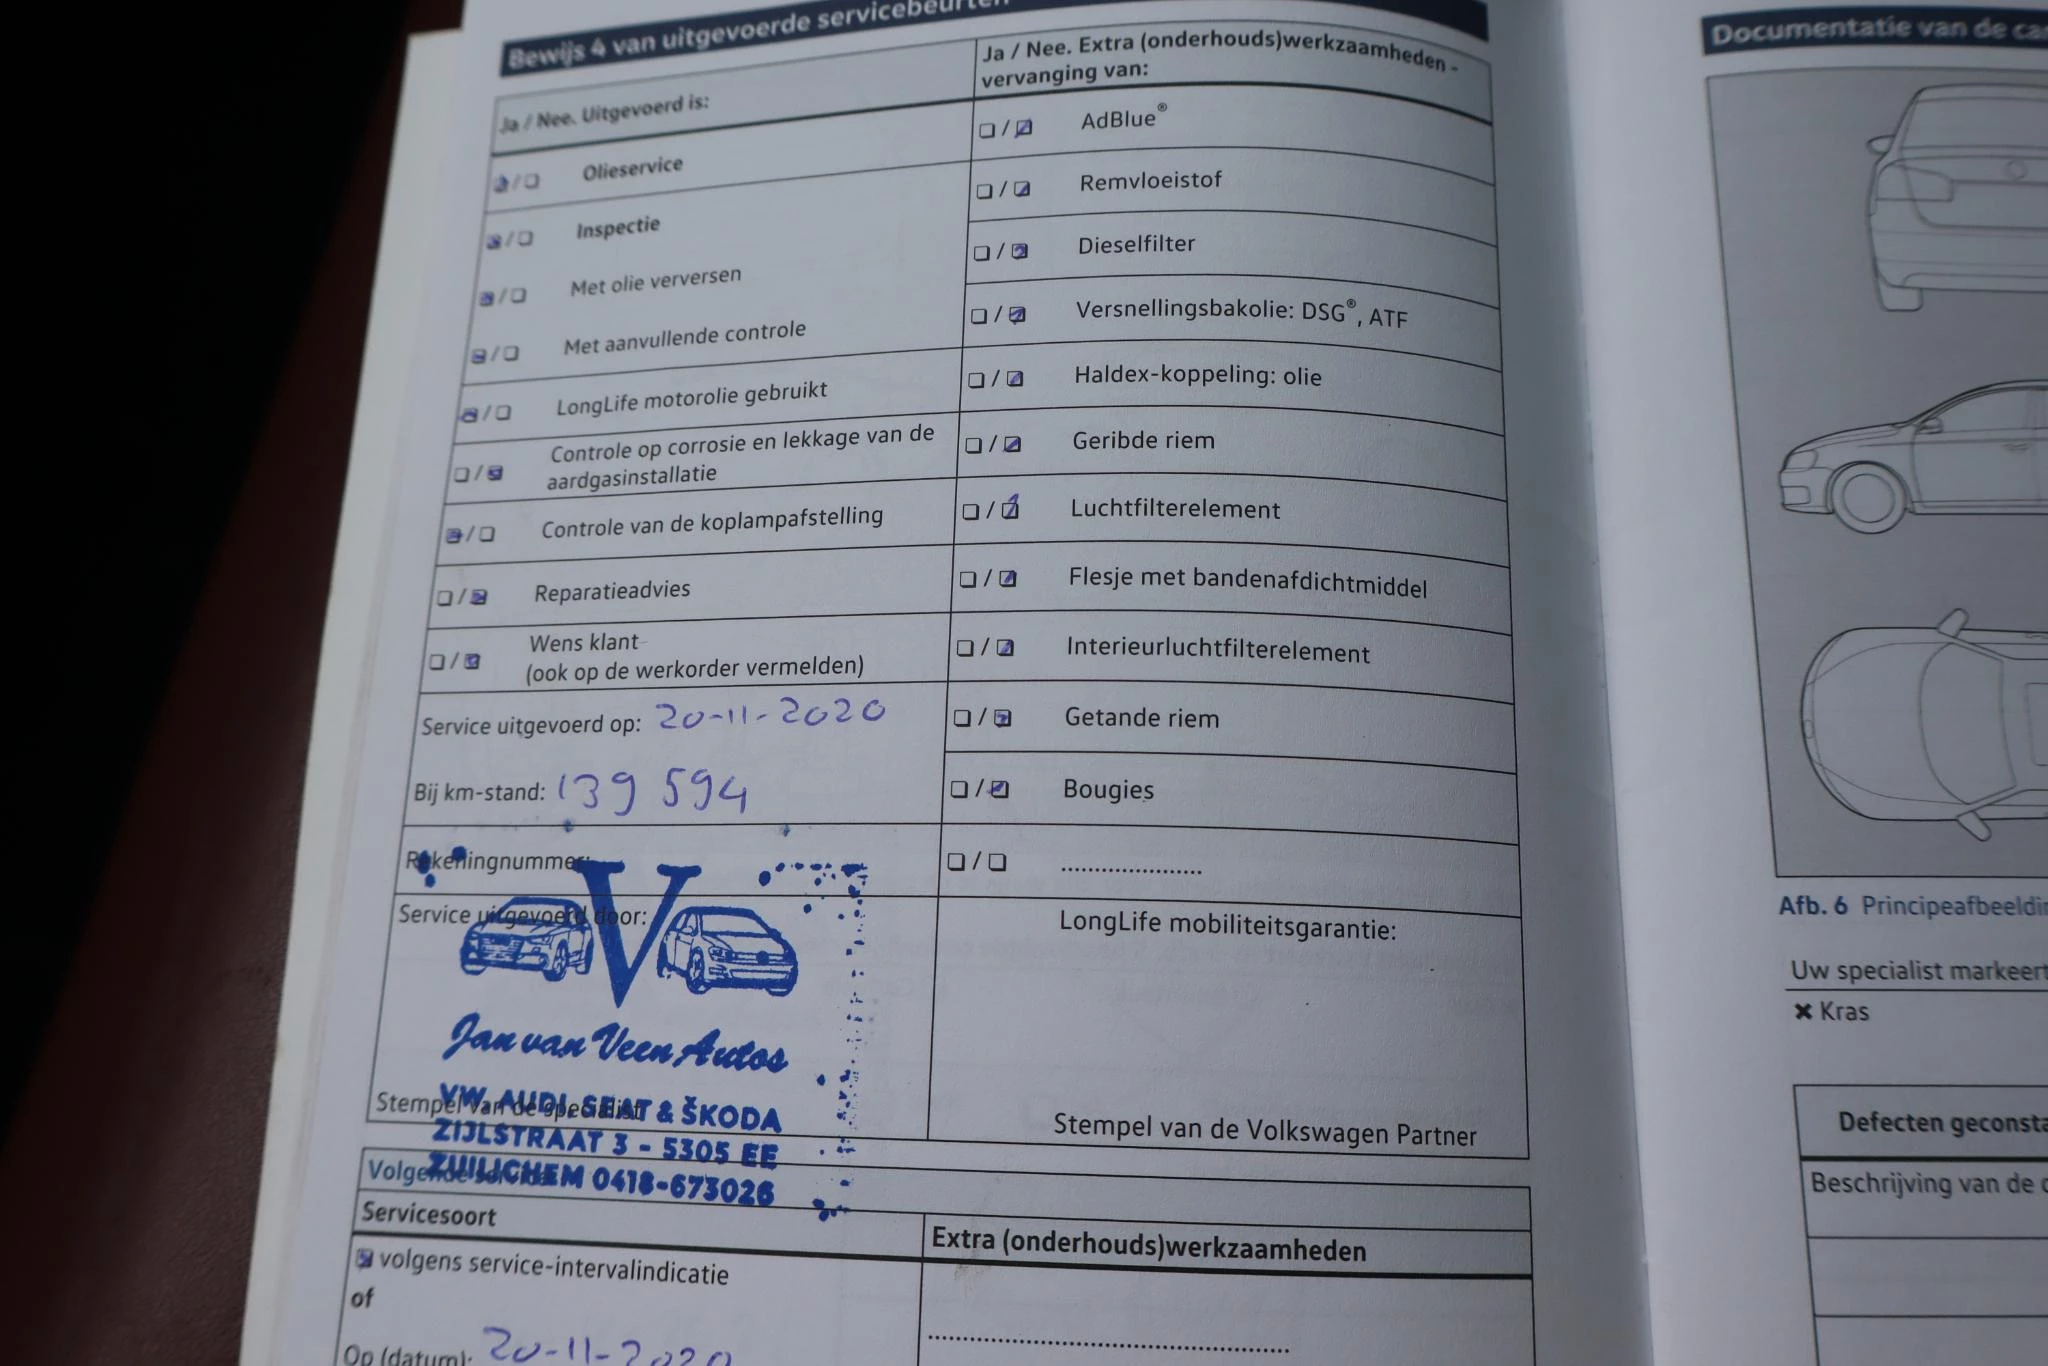 Bewijs 4 van uitgevoerde servicebeurten
Ja / Nee. Uitgevoerd is:
Olieservice
Inspectie
Met olie verversen
Met aanvullende controle
LongLife motorolie gebruikt
Controle op corrosie en lekkage van de
aardgasinstallatie
Controle van de koplampafstelling
Reparatieadvies
Wens klant
(ook op de werkorder vermelden)
Service uitgevoerd op: 20-11-2020
Bij km-stand: 139 594
Rekeningnummer:
Service uitgevoerd door:
V
Jan van Veen Autos
VW, AUDI, SEAT & ŠKODA
Stempel van de specialist
ZIJLSTRAAT 3 - 5305 EE
ZUILICHEM 0418-673026
Ja / Nee. Extra (onderhouds)werkzaamheden -
vervanging van:
AdBlue®
Remvloeistof
Dieselfilter
Versnellingsbakolie: DSG®, ATF
Haldex-koppeling: olie
Geribde riem
Luchtfilterelement
Flesje met bandenafdichtmiddel
Interieurluchtfilterelement
Getande riem
Bougies
LongLife mobiliteitsgarantie:
Stempel van de Volkswagen Partner
Volgende service
Servicesoort
volgens service-intervalindicatie
of
Op (datum): 20-11-2020
Extra (onderhouds)werkzaamheden
Documentatie van de
Afb. 6
Uw specialist markeert
✖ Kras
Defecten
Beschrijving van de